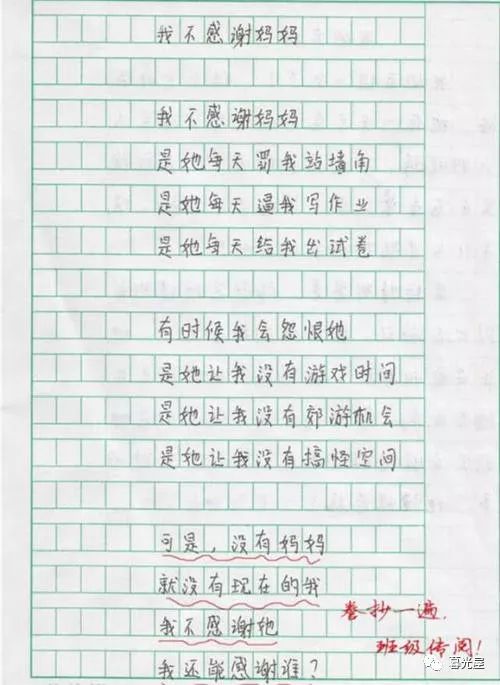 我不感谢妈妈
我不感谢妈妈
是她每天罚我站墙角
是她每天逼我写作业
是她每天给我出试卷
有时候我会怨恨她
是她让我没有游戏时间
是她让我没有郊游机会
是她让我没有搞怪空间
可是，没有妈妈
就没有现在的我
我不感谢她
我还能感谢谁？
卷抄一遍.
班级传阅！
暮光屋